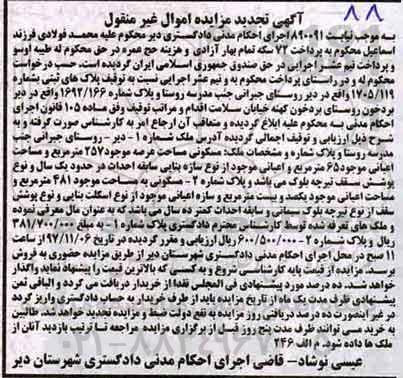 ۸۸
آگهی تجدید مزایده اموال غیر منقول
به موجب نیابت ۸۹۰۰۹۱ اجرای احکام مدنی دادگستری دیر محکوم علیه محمد فولادی فرزند
اسماعیل محکوم به پرداخت ۷۲ سکه تمام بهار آزادی و هزینه حج عمره در حق محکوم له طیبه اوسو
و پرداخت نیم عشر اجرایی در حق صندوق جمهوری اسلامی ایران گردیده است. حسب درخواست
محکوم له و در راستای پرداخت محکوم به و نیم عشر اجرایی نسبت به توقیف پلاک های ثبتی بشماره
۱۷۰۵/۱۱۹ واقع در دیر روستای جبرانی جنب مدرسه روستا و پلاک شماره ۱۶۹۲/۱۶۶ واقع در دیر
بردخون روستای بردخون کهنه خیابان سلامت اقدام و مراتب توقیف وفق ماده ۱۰۵ قانون اجرای
احکام مدنی به محکوم علیه ابلاغ گردیده و متعاقب آن ارجاع امر به کارشناسی صورت گرفته و به
شرح ذیل ارزیابی و توقیف اجمالی گردیده آدرس ملک شماره ۱ - دیر - روستای جبرانی جنب
مدرسه روستا و پلاک شماره و مشخصات ملک: مسکونی مساحت عرصه موجود ۲۵۷ مترمربع و مساحت
اعیانی موجود ۶۵ مترمربع و اعیانی موجود از نوع سازه بنایی سابقه احداث در حدود یک سال و نوع
پوشش سقف تیرچه بلوک می باشد و پلاک شماره ۲ - مسکونی به مساحت موجود ۴۸۱ مترمربع و
مساحت اعیانی موجود یکصد و بیست مترمربع و سازه اعیانی موجود از نوع اسکلت بنایی و نوع پوشش
سقف از نوع تیرچه بلوک سیمانی و سابقه احداث کمتر ده سال می باشد که به عنوان مال معرفی نموده
و ملک های تعرفه شده توسط کارشناس محترم دادگستری پلاک شماره ۱ - به مبلغ ۳۸۱/۷۰۰/۰۰۰
ریال و پلاک شماره ۲ - ۶۰۰/۵۰۰/۰۰۰ ریال ارزیابی و مقرر گردیده در تاریخ ۹۷/۱۱/۰۶ از ساعت
۱۱ صبح در محل اجرای احکام مدنی دادگستری شهرستان دیر از طریق مزایده حضوری به فروش
برسد. مزایده از قیمت پایه کارشناسی شروع و به کسی که بالاترین قیمت را پیشنهاد نماید واگذار
خواهد شد. ده درصد مورد پیشنهادی فی المجلس نقدا از خریدار دریافت می گردد و الباقی ثمن
پیشنهادی ظرف مدت یک ماه از تاریخ مزایده باید از طرف خریدار به حساب دادگستری واریز گردد
در غیر اینصورت ده درصد دریافتی روز مزایده به نفع دولت ضبط و مزایده تجدید خواهد شد. طالبین
به خرید می توانند ظرف مدت پنج روز قبل از برگزاری مزایده مراجعه تا ترتیب بازدید آنان از
ملک ها داده شود. م الف ۲۴۶
عیسی نوشاد - قاضی اجرای احکام مدنی دادگستری شهرستان دیر